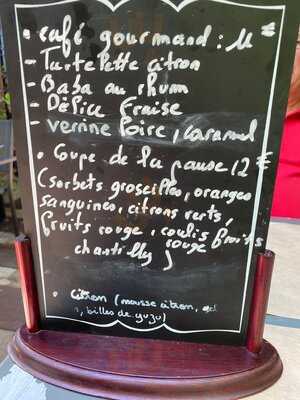 • café gourmand : 11 €
- Tartelette citron
- Baba au rhum
- Délice Fraise
- verrine Poire, caramel
• Coupe de la pause 12 €
(sorbets groseilles, oranges
sanguines, citrons verts,
fruits rouge, coulis fruits
rouge
chantilly)
• citron (mousse citron, gel
, billes de yuzu)